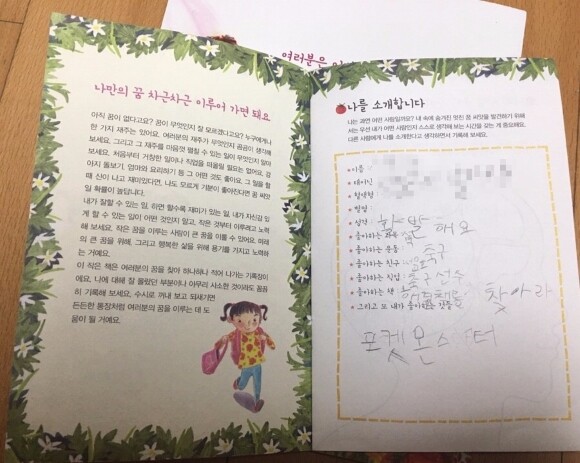 여러분은
나만의 꿈 차근차근 이루어 가면 돼요
아직 꿈이 없다고요? 꿈이 무엇인지 잘 모르겠다고요? 누구에게나
한 가지 재주는 있어요. 여러분의 재주가 무엇인지 곰곰이 생각해
보세요. 그리고 그 재주를 마음껏 펼칠 수 있는 일이 무엇인지 알아
보세요. 처음부터 거창한 일이나 직업을 떠올릴 필요는 없어요. 강
아지 돌보기, 엄마와 요리하기 등 그 어떤 것도 좋아요. 그 일을 할
때 신나고 재미있다면, 나도 모르게 기분이 좋아진다면 꿈 씨앗
일 확률이 높답니다.
내가 잘할 수 있는 일, 하면 할수록 재미가 있는 일, 내가 자신감 있
게 할 수 있는 일이 어떤 것인지 알고, 작은 것부터 이루려고 노력
해 보세요. 작은 꿈을 이루는 사람이 큰 꿈을 이룰 수 있어요. 미래
의 큰 꿈을 위해, 그리고 행복한 삶을 위해 용기를 가지고 노력하
는 거예요.
이 작은 책은 여러분의 꿈을 찾아 하나하나 적어 나가는 기록장이
에요. 나에 대해 잘 몰랐던 부분이나 아무리 사소한 것이라도 꼼꼼
히 기록해 보세요. 수시로 꺼내 보고 되새기면
든든한 통장처럼 여러분의 꿈을 이루는 데 도
움이 될 거예요.
나를 소개합니다
나는 과연 어떤 사람일까요? 내 속에 숨겨진 멋진 꿈 씨앗을 발견하기 위해
서는 우선 내가 어떤 사람인지 스스로 생각해 보는 시간을 갖는 게 중요해요.
다른 사람에게 나를 소개한다고 생각하면서 기록해 보세요.
이름
태어난
혈액형
별명
성격 활발해요
좋아하는 과목
좋아하는 운동 축구
좋아하는 친구
좋아하는 직업 축구선수
좋아하는 책 찾아라
그리고 또 내가 좋아하는 것들
포켓몬스터